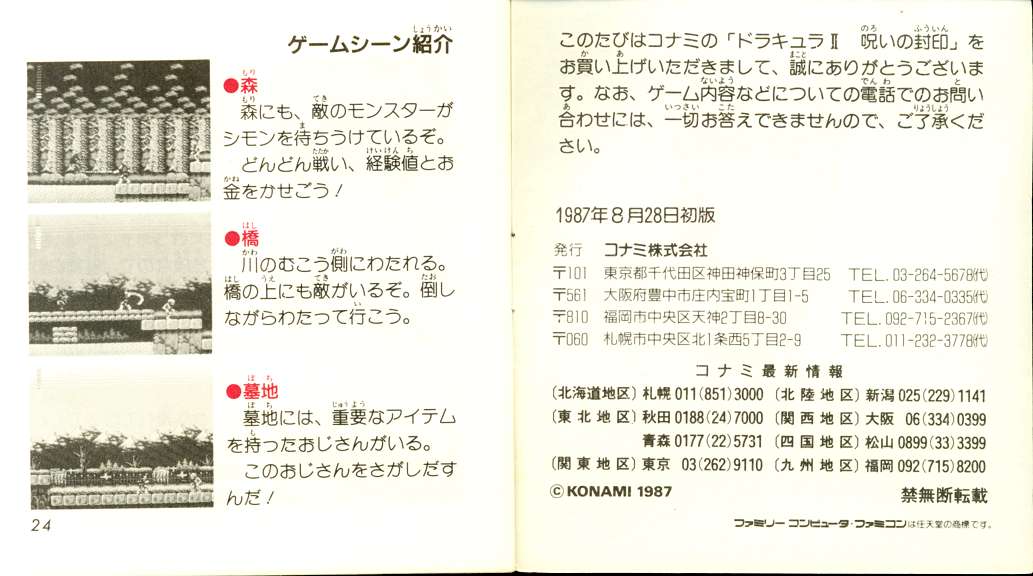 ゲームシーン紹介
●森
森にも、敵のモンスターが
シモンを待ちうけているぞ。
どんどん戦い、経験値とお
金をかせごう！
●橋
川のむこう側にわたれる。
橋の上にも敵がいるぞ。倒し
ながらわたって行こう。
●墓地
墓地には、重要なアイテム
を持ったおじさんがいる。
このおじさんをさがしだす
んだ！
24
このたびはコナミの「ドラキュラⅡ 呪いの封印」を
お買い上げいただきまして、誠にありがとうございま
す。なお、ゲーム内容などについての電話でのお問い
合わせには、一切お答えできませんので、ご了承くだ
さい。
1987年8月28日初版
発行 コナミ株式会社
〒101 東京都千代田区神田神保町3丁目25 TEL.03-264-5678㈹
〒561 大阪府豊中市庄内宝町1丁目1-5 TEL.06-334-0335㈹
〒810 福岡市中央区天神2丁目8-30 TEL.092-715-2367㈹
〒060 札幌市中央区北1条西5丁目2-9 TEL.011-232-3778㈹
コナミ最新情報
(北海道地区) 札幌 011(851)3000 (北陸地区) 新潟 025(229)1141
(東北地区) 秋田 0188(24)7000 (関西地区) 大阪 06(334)0399
青森 0177(22)5731 (四国地区) 松山 0899(33)3399
(関東地区) 東京 03(262)9110 (九州地区) 福岡 092(715)8200
©KONAMI 1987 禁無断転載
ファミリーコンピュータ・ファミコンは任天堂の商標です。